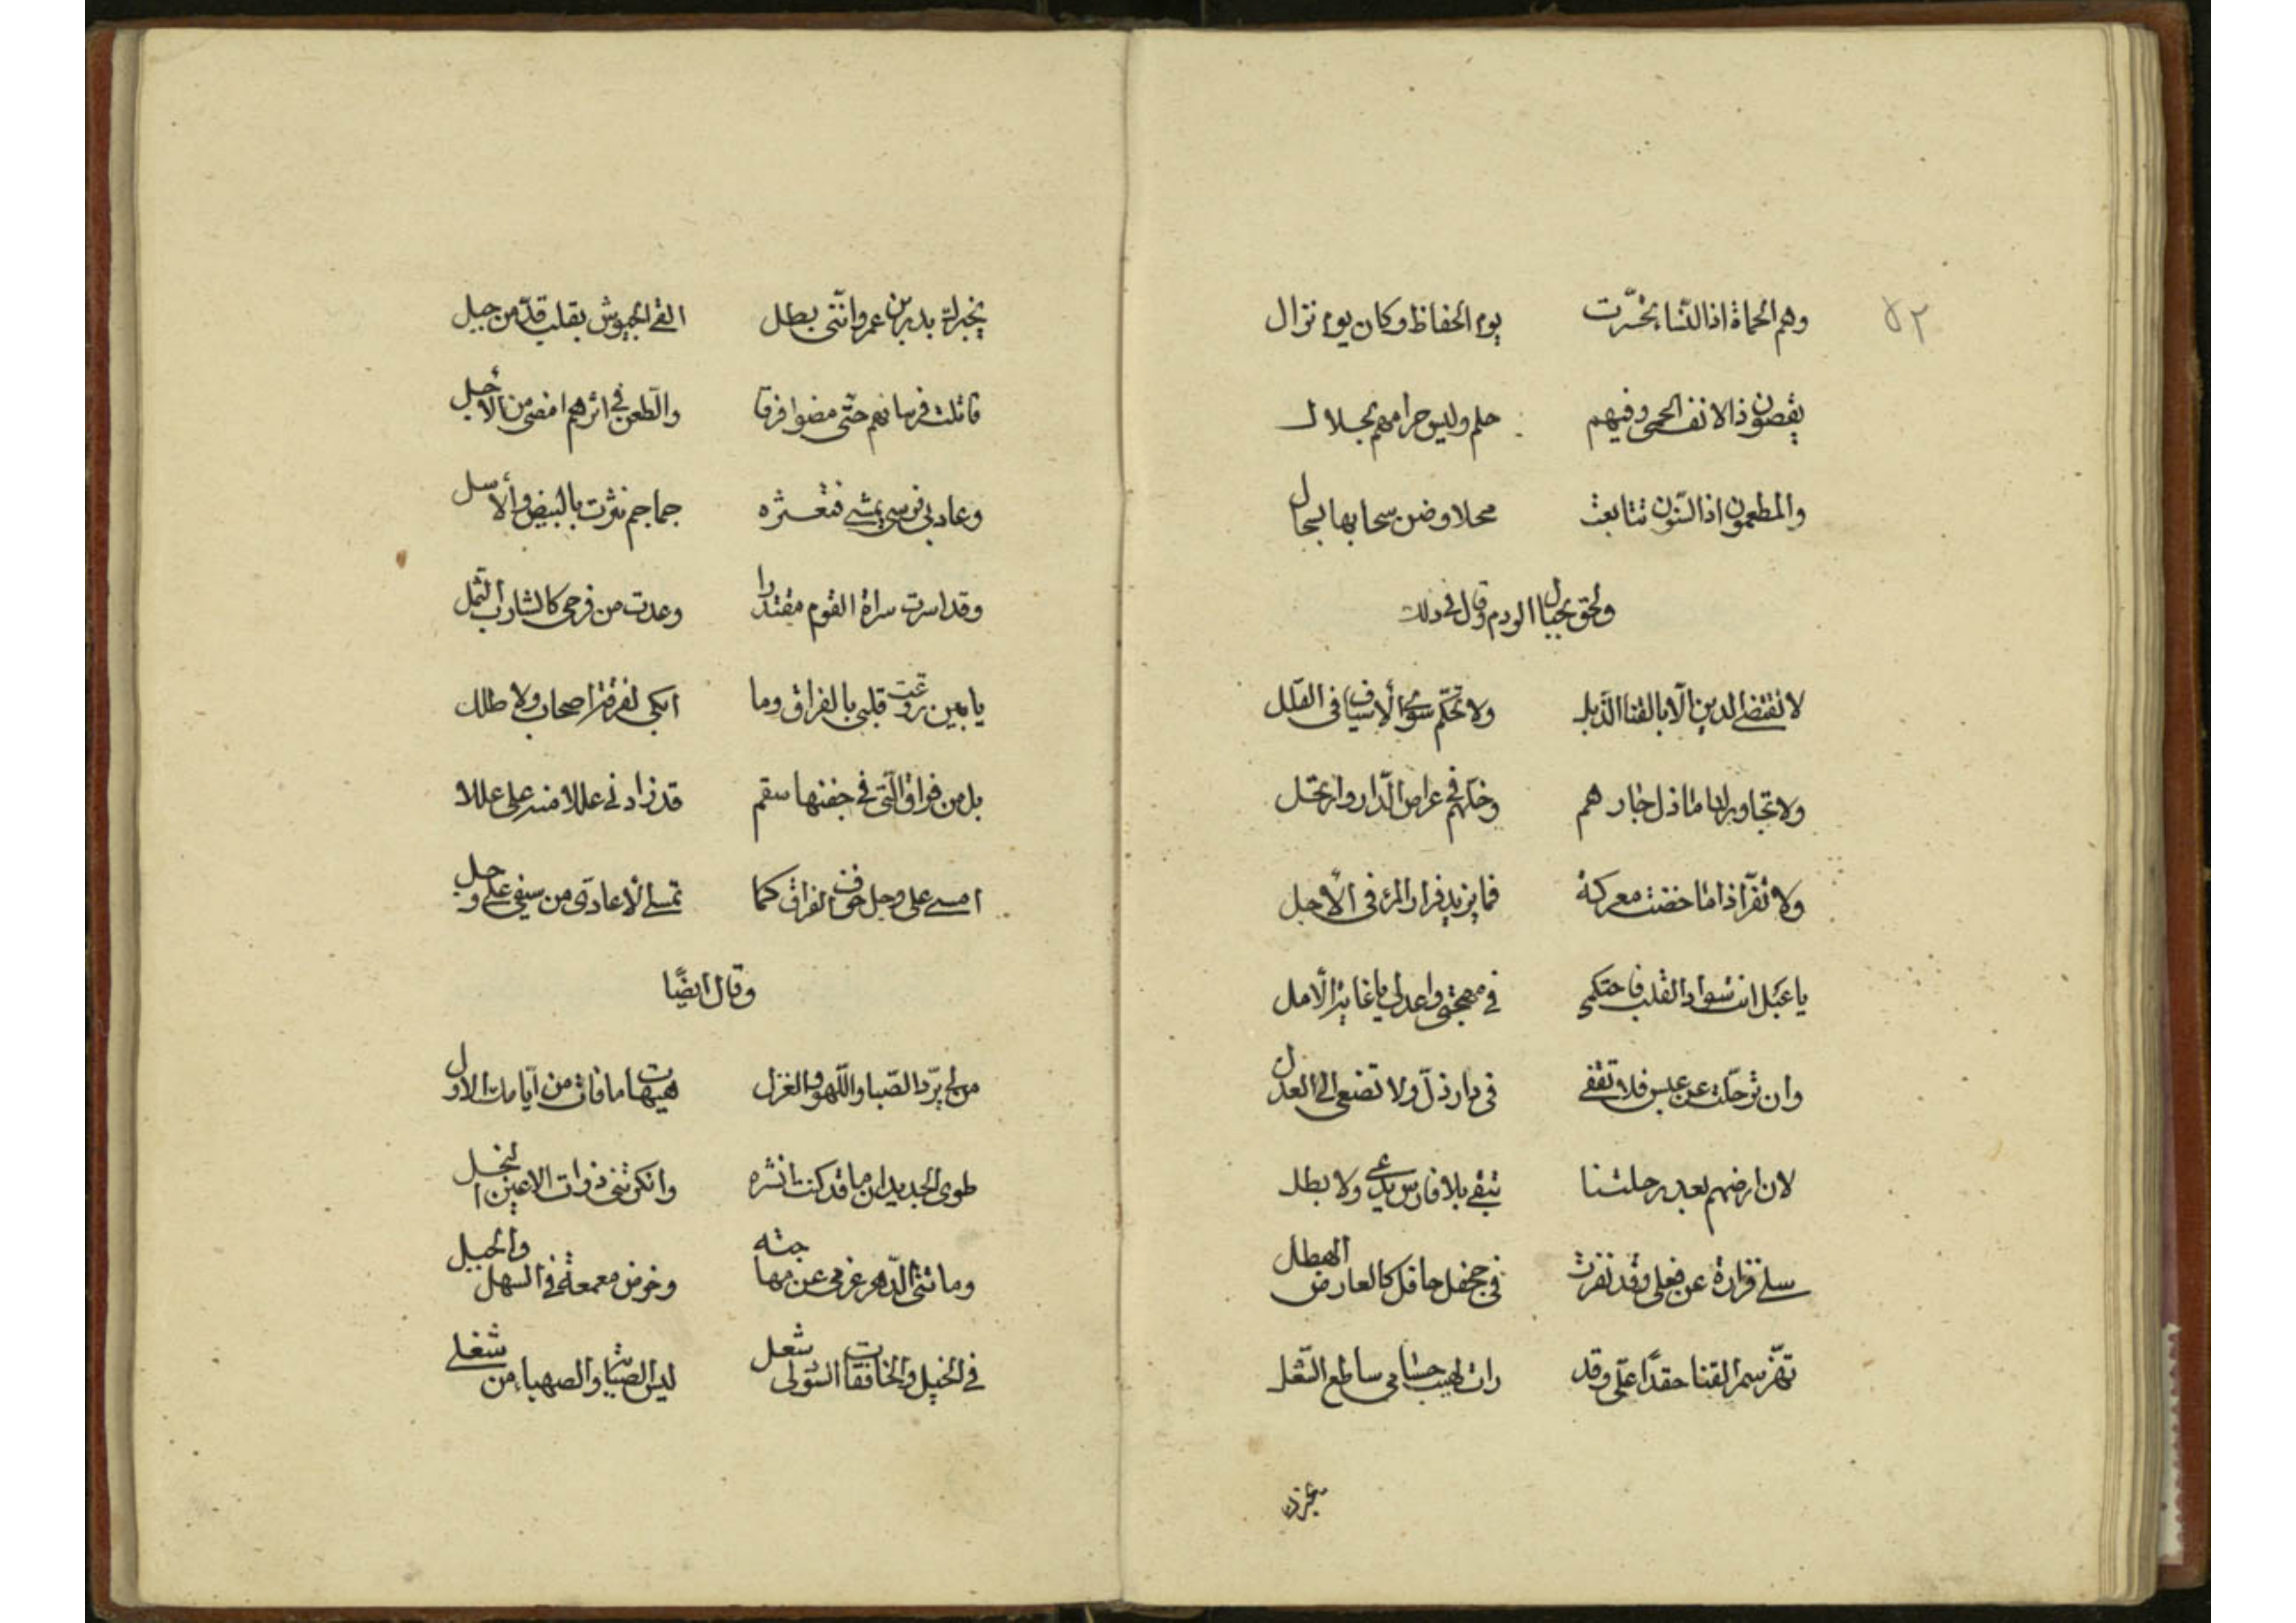 ٥٢
وهم الحماة اذا النّساء تحسّرت يوم الحفاظ وكان يوم نزال
يقصون ذا الانف الحمى وفيهم حلم وليس حرامهم بحلال
والمطعمون اذا السّنون تتابعت محلا وضن سحابها بسجال
ولحق بجبال الردم وقال في ذلك
لا تقتضى الدين الّا بالقنا الذّبل ولا تحكّم سوى الأسياف فى القلل
ولا تجاور لئاما ذل جارهم وخلّهم فى عراص الدّار وارتحل
ولا تفرّ اذا ما خضت معركة فما يزيد فرار المرء فى الأجل
يا عبل انت سواد القلب فاحتكمى فى مهجتى واعدلى يا غاية الأمل
وان ترحّلت عن عبس فلا تقفى فى دار ذلّ ولا تصغى الى العذل
لان ارضهم بعد رحلتنا تبقى بلا فارس يدعى ولا بطل
سلى فزارة عن فعلى وقد نفرت فى جحفل حافل كالعارض الهطل
تهزّ سمر القنا حقدًا علىّ وقد رات لهيب حسامى ساطع الشّعل
يخبرك بدر بن عمرو انّنى بطل القى الجيوش بقلب قدّ من جبل
قاتلت فرسانهم حتّى مضوا فرقا والطّعن فى اثرهم امضى من الأجل
وعاد بى فرسى يمشى فتعثره جماجم نثرت بالبيض والأسل
وقد اسرت سراة القوم مقتدرا وعدت من فرحى كالشارب الثّمل
يا بين روّعت قلبى بالفراق وما ابكى لفرقة اصحاب ولا طلل
بل من فراق الّتى فى جفنها سقم قد زادنى عللا منه على عللا
امسى على وجل خوف الفراق كما تمسى الأعادى من سيفى على وجل
وقال ايضًا
من لى بردّ الصّبا واللّهو والغزل هيهات ما فات من ايّامك الاول
طوى الجديدان ما قد كنت انشره وانكرتنى ذوات الاعين النجل
وما ثنى الدّهر عزمى عن مهاجمته وخوض معمعة فى السهل والجبل
فى الخيل والخافقات السّود لى شغل ليس الصبابة والصهباء من شغلى